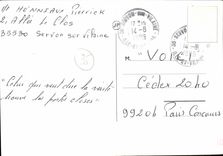 Mr HENNEAUX Pierrick
2, Allée Le Clos
35530 Servon sur Vilaine
"Celui qui veut dire la vérité
trouve les portes closes"
"VOICI"
Cédex 2040
99206 Paris Concours